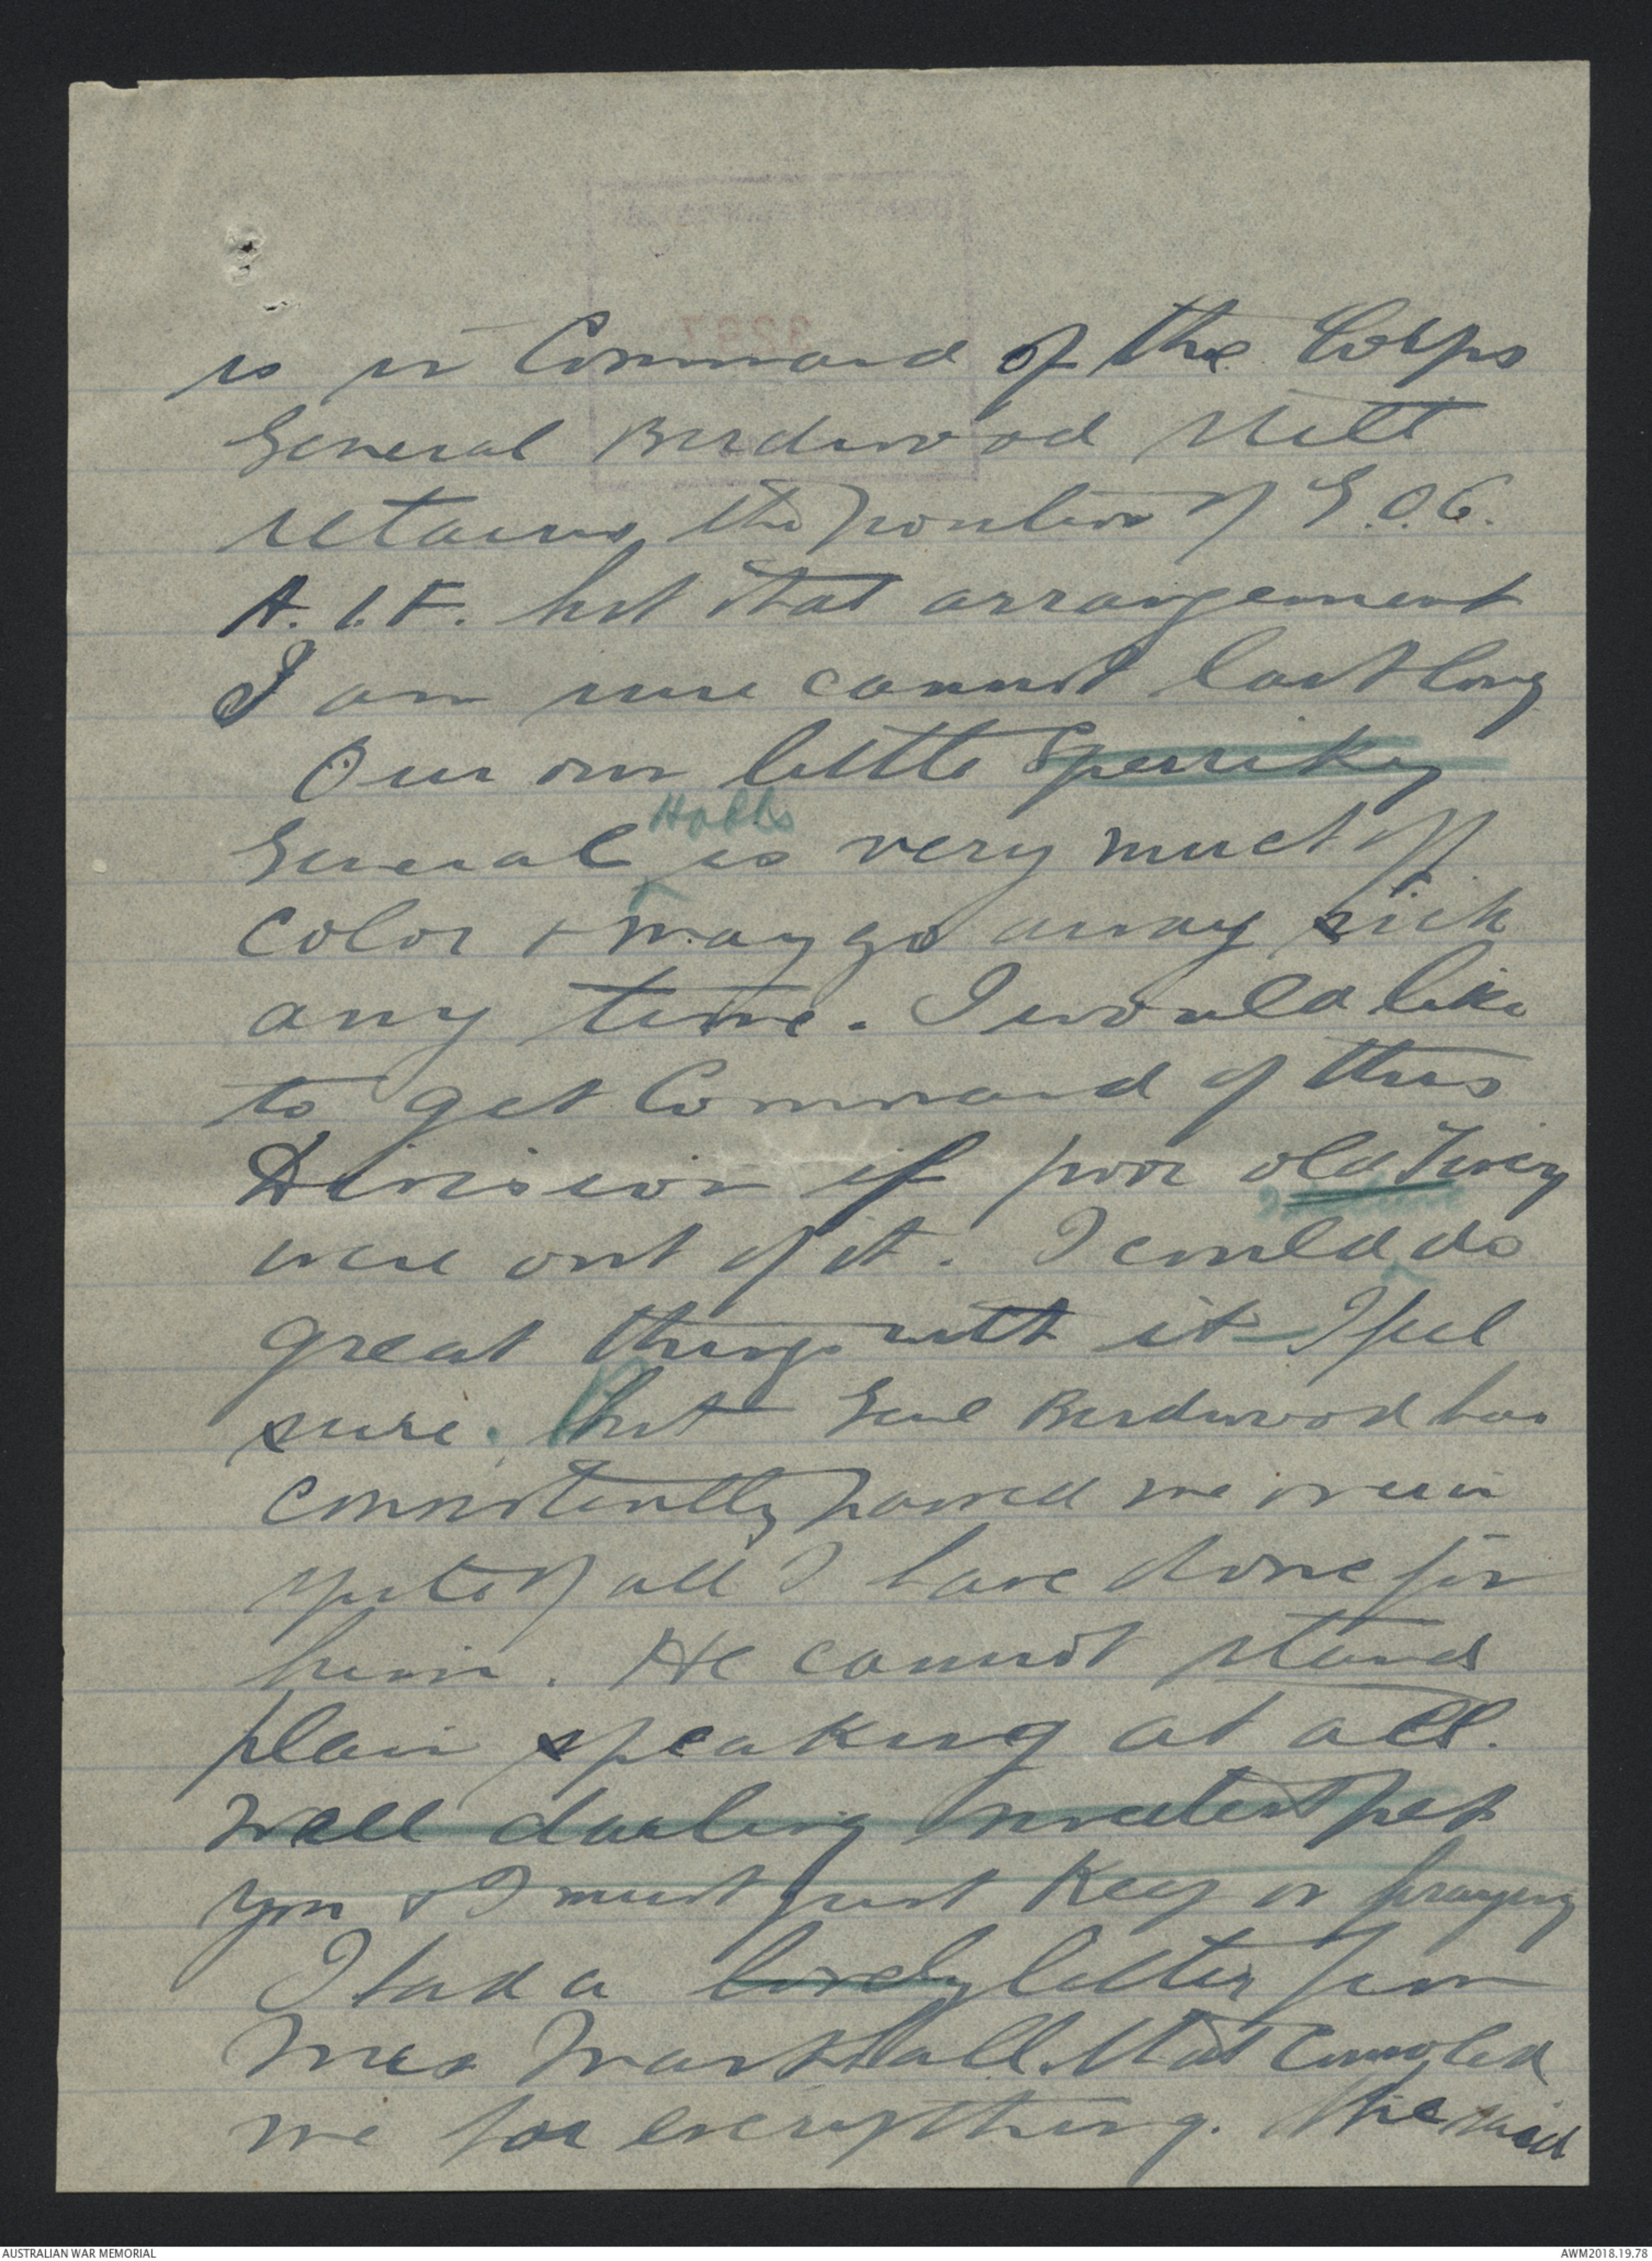 is in Command of the Corps
General Birdwood still
retains the position of G.O.C.
A.I.F. but that arrangement
I am sure cannot last long
Our own little
Hobbs
General is very much off
color & may go away sick
any time. I would like
to get Command of this
Division if poor old Tivey
were out of it. I could do
great things with it I feel
sure. but Genl Birdwood has
consistently passed me over in
spite of all I have done for
him. He cannot stand
plain speaking at all.
Well darling sweetest pet
you & I must just keep on praying
I had a lovely letter from
Mrs Marshall that consoled
me for everything. She said
3297
AUSTRALIAN WAR MEMORIAL
AWM2018.19.78